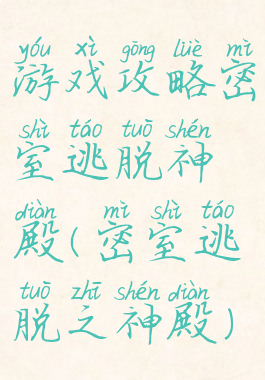 yóu xì gōng lüè mì
游戏攻略密
shì táo tuō shén
室逃脱神
diàn mì shì táo
殿(密室逃
tuō zhī shén diàn
脱之神殿)